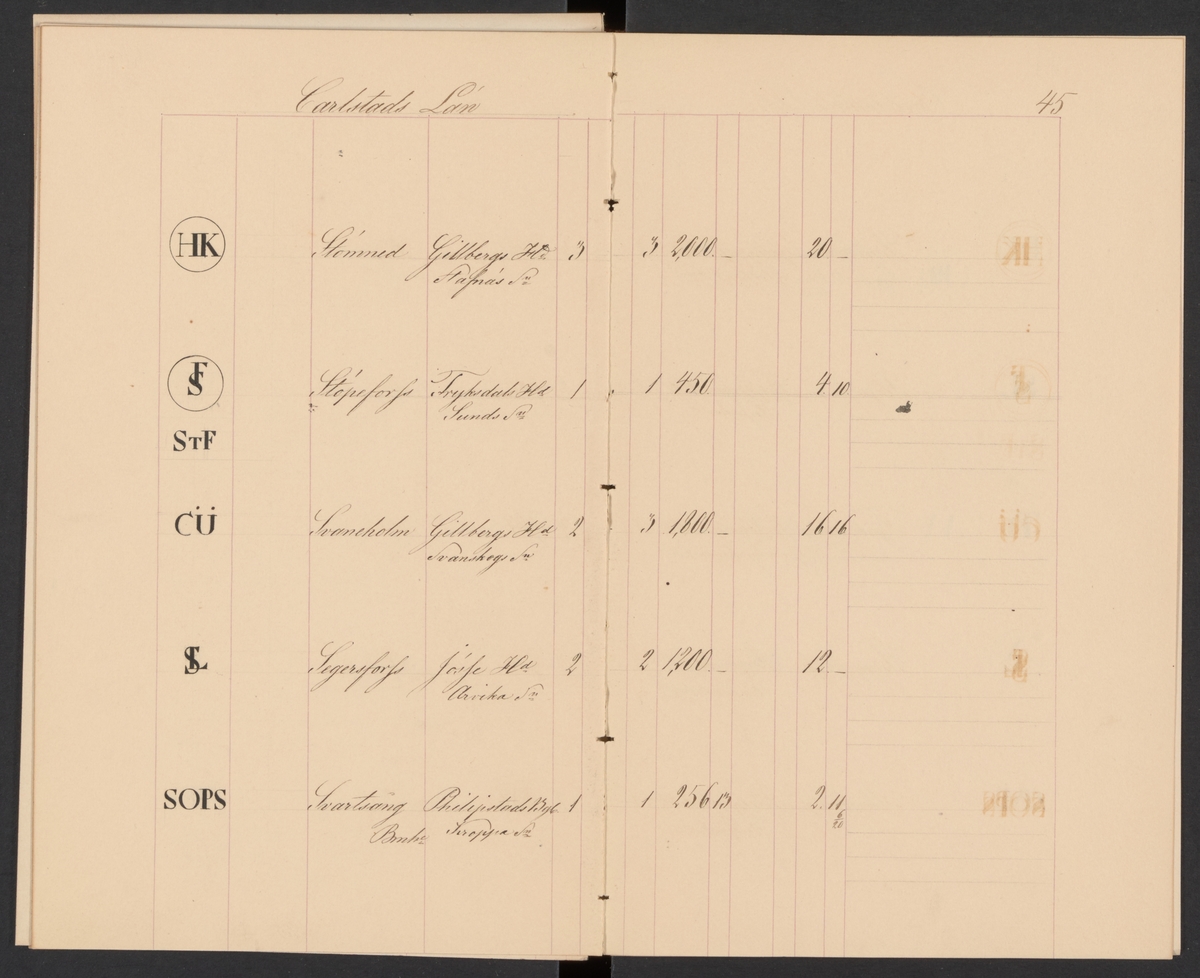 Carlstads Län 45
HK Stömned Gillbergs Hd 3 3 2,000 — 20 —
Stafnäs Sn
SF Stöpeforss Fryksdals Hd 1 1 450 4 10
Sunds Sn
STF
CÜ Svaneholm Gillbergs Hd 2 3 1,800 — 16 16
Svanskogs Sn
SL Segersforss Jösse Hd 2 2 1,200 — 12 —
Arvika Sn
SOPS Svartsång Philipstads Bgl. 1 1 256 13 2 11 6/20
Bruk Kroppa Sn